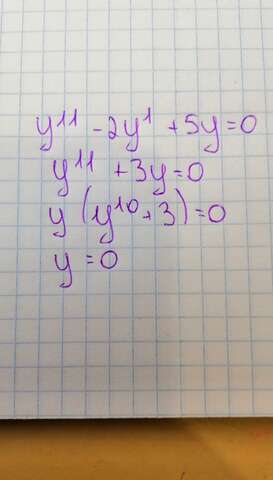 y¹¹ - 2y¹ + 5y = 0
y¹¹ + 3y = 0
y (y¹⁰ + 3) = 0
y = 0